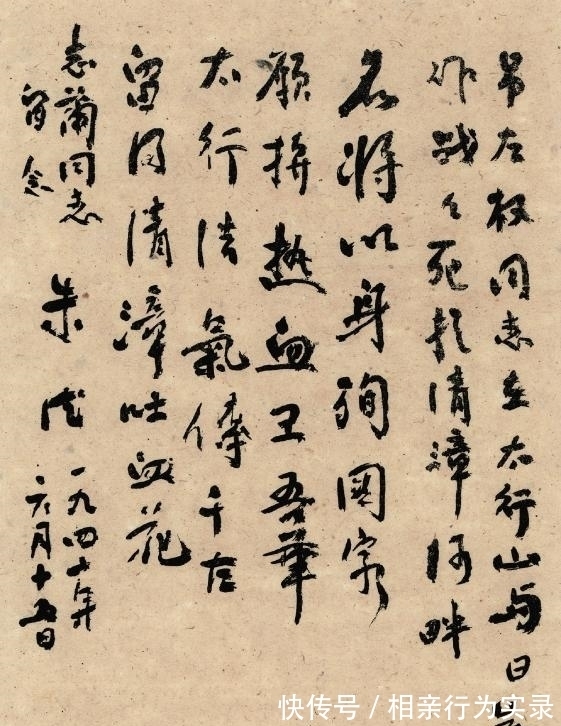 吊左权同志在太行山与日
作战々死於清漳河畔
名将以身殉國家
願拚热血卫吾華
太行浩氣傳千古
留得清漳吐血花
志蘭同志
留念
朱德
一九四二年
六月十五日
快传号/相亲行为实录